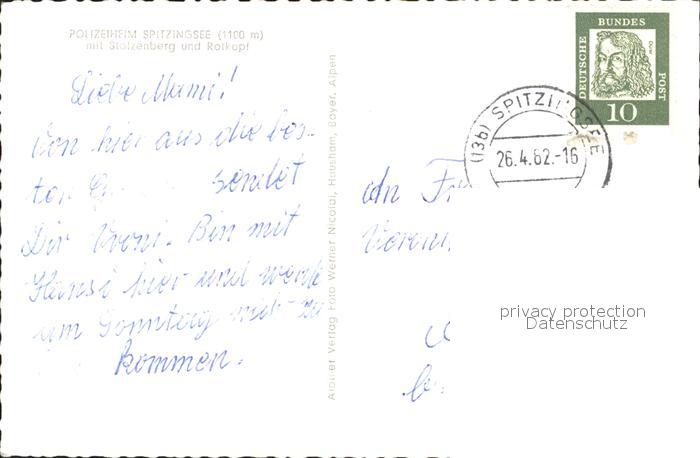 POLIZEIHEIM SPITZINGSEE (1100 m)
mit Stolzenberg und Rotkopf
Liebe Mami!
Von hier aus die bes-
ten sendet
Dir Vroni. Bin mit
Hansi hier und werde
am Sonntag
kommen.
Alpiner Verlag Foto Werner Nicolaj, Hausham, Bayer. Alpen
DEUTSCHE BUNDES POST
Dürer
10
(13b) SPITZINGSEE
26.4.62.-16
An
privacy protection
Datenschutz